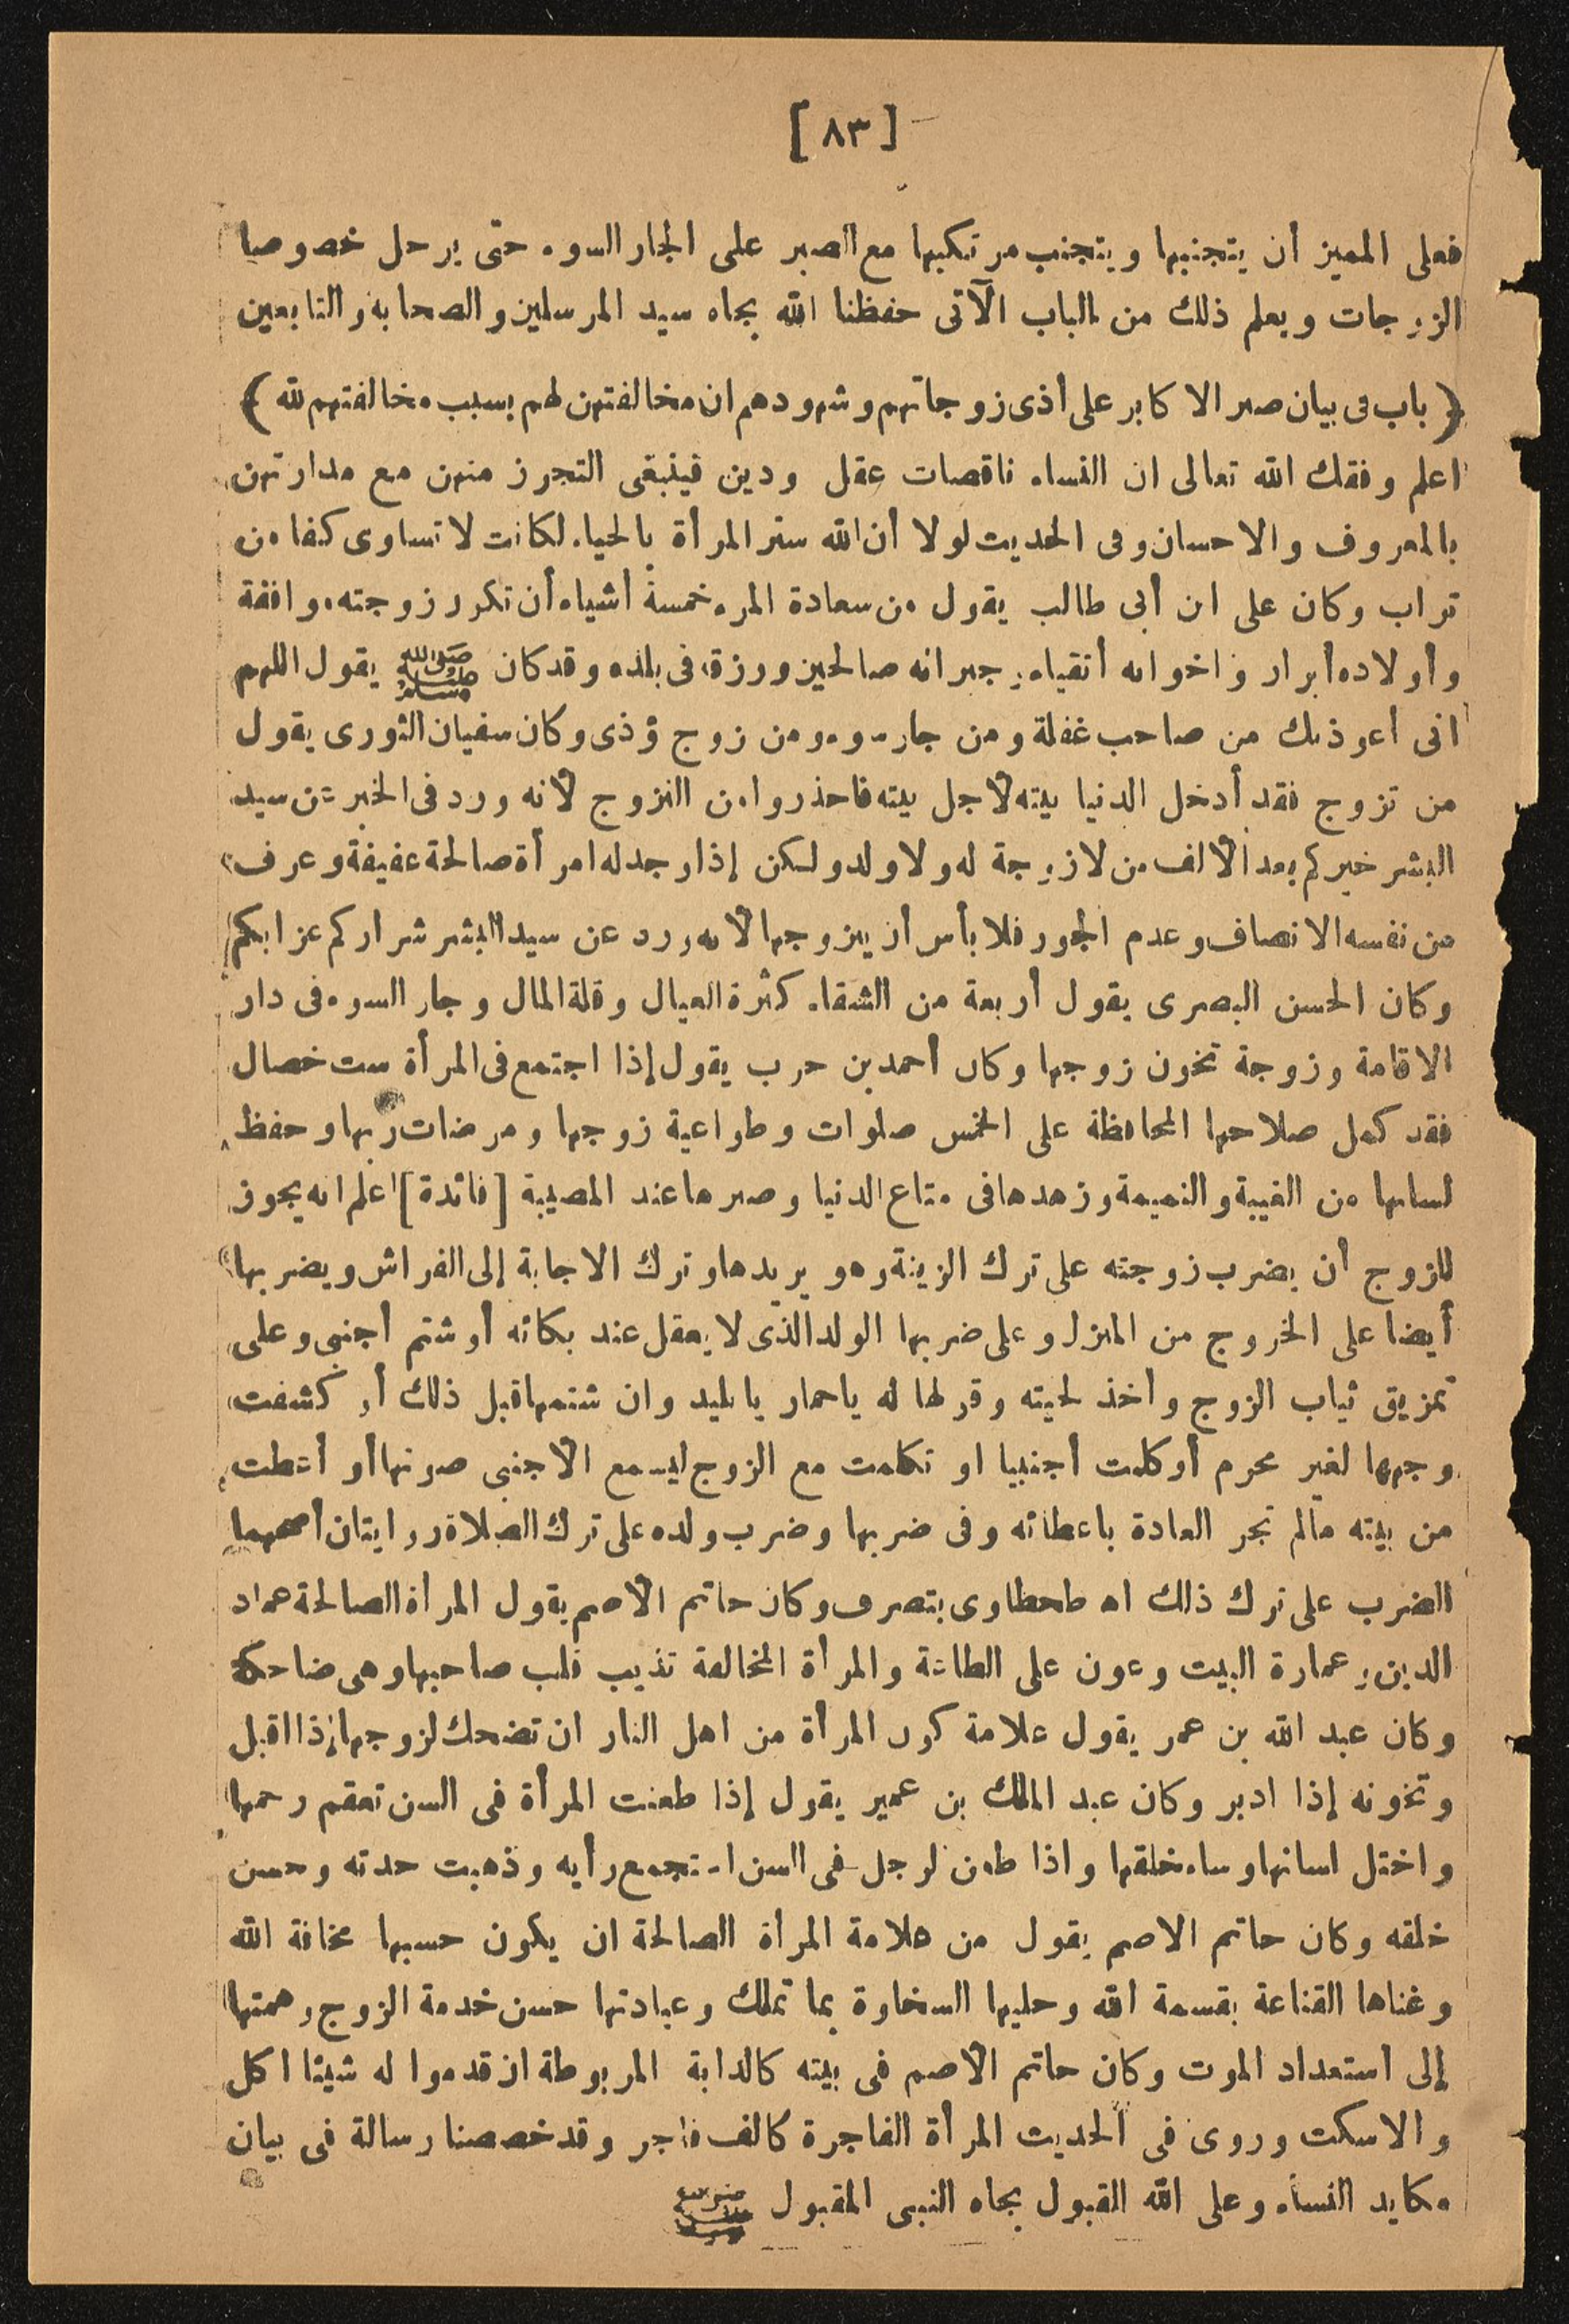 [ ٨٣ ]
فعلى المميز أن يتجنبها ويتجنب مرتكبها مع الصبر على الجار السوء حتى يرحل خصوصا
الزوجات ويعلم ذلك من الباب الآتى حفظنا الله بجاه سيد المرسلين والصحابة والتابعين
﴿ باب فى بيان صبر الاكابر على أذى زوجاتهم وشهودهم ان مخالفتهن لهم بسبب مخالفتهم لله ﴾
اعلم وفقك الله تعالى ان النساء ناقصات عقل ودين فينبغى التحرز منهن مع مدارتهن
بالمعروف والاحسان وفى الحديث لولا أن الله ستر المرأة بالحياء لكانت لا تساوى كفا من
تراب وكان على ابن أبى طالب يقول من سعادة المرء خمسة أشياء أن تكون زوجته موافقة
وأولاده أبرار واخوانه أتقياء وجيرانه صالحين ورزقه فى بلده وقد كان ﷺ يقول اللهم
انى أعوذ بك من صاحب غفلة ومن جار سوء ومن زوج تؤذى وكان سفيان الثورى يقول
من تزوج فقد أدخل الدنيا بيته لأجل بيته فاحذروا من التزوج لأنه ورد فى الخبر عن سيد
البشر خيركم بعد الألف من لا زوجة له ولا ولد ولكن إذا وجد له امرأة صالحة عفيفة وعرف
من نفسه الانصاف وعدم الجور فلا بأس أن يتزوجها لأنه ورد عن سيد البشر شراركم عزابكم
وكان الحسن البصرى يقول أربعة من الشقاء كثرة العيال وقلة المال وجار السوء فى دار
الاقامة وزوجة تخون زوجها وكان أحمد بن حرب يقول إذا اجتمع فى المرأة ست خصال
فقد كمل صلاحها المحافظة على الخمس صلوات وطواعية زوجها ومرضات ربها وحفظ
لسانها من الغيبة والنميمة وزهدها فى متاع الدنيا وصبرها عند المصيبة [فائدة] اعلم انه يجوز
للزوج أن يضرب زوجته على ترك الزينة وهو يريدها وترك الاجابة إلى الفراش ويضربها
أيضا على الخروج من المنزل وعلى ضربها الولد الذى لا يعقل عند بكائه أو شتم أجنبى وعلى
تمزيق ثياب الزوج وأخذ لحيته وقولها له ياحمار يابليد وان شتمها قبل ذلك أو كشفت
وجهها لغير محرم أو كلمت أجنبيا او تكلمت مع الزوج ليسمع الأجنبى صوتها أو أعطت
من بيته مالم تجر العادة باعطائه وفى ضربها وضرب ولده على ترك الصلاة روايتان أصحهما
الضرب على ترك ذلك اه طحطاوى بتصرف وكان حاتم الأصم يقول المرأة الصالحة عماد
الدين وعمارة البيت وعون على الطاعة والمرأة المخالفة تذيب قلب صاحبها وهى ضاحكة
وكان عبد الله بن عمر يقول علامة كون المرأة من اهل النار ان تضحك لزوجها إذا اقبل
وتخونه إذا ادبر وكان عبد الملك بن عمير يقول إذا طعنت المرأة فى السن تعقم رحمها
واختل لسانها وساء خلقها واذا طعن لرجل فى السن استجمع رأيه وذهبت حدته وحسن
خلقه وكان حاتم الاصم يقول من علامة المرأة الصالحة ان يكون حسبها مخافة الله
وغناها القناعة بقسمة الله وحليها السخاوة بما تملك وعبادتها حسن خدمة الزوج وهمتها
إلى استعداد الموت وكان حاتم الأصم فى بيته كالدابة المربوطة ان قدموا له شيئا اكل
والا سكت وروى فى الحديث المرأة الفاجرة كالف فاجر وقد خصصنا رسالة فى بيان
مكايد النساء وعلى الله القبول بجاه النبى المقبول ﷺ